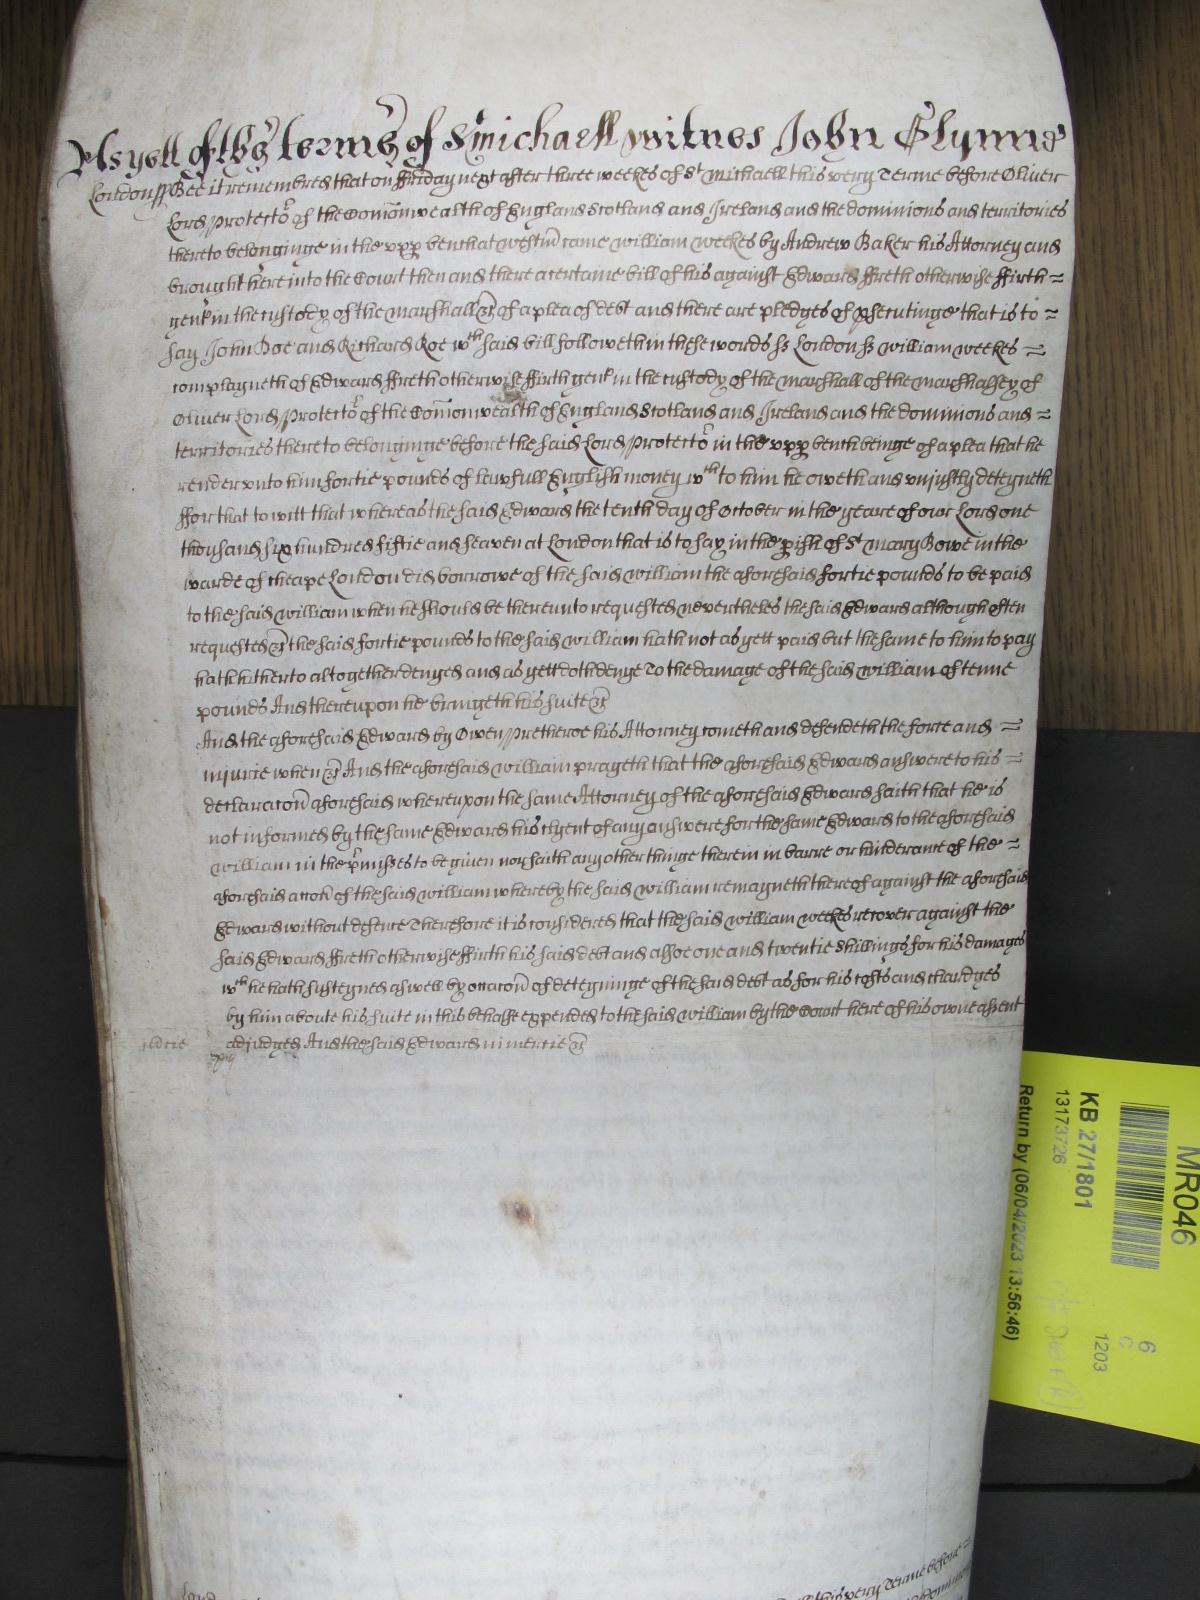 As yett of the terme of St michaell witnes John Glynne
London ss Bee it remembred that on ffriday next after three weekes of St Michaell this very Terme before Oliver
Lord Protector of the Comonwealth of England Scotland and Ireland and the dominions and territories
thereto belonginge in the upp bench at westm came william weekes by Andrew Baker his Attorney and
brought here into the Court then and there a certaine bill of his against Edward ffreth otherwise ffirth =
gent in the custody of the marshall &c of a plea of debt and there are pledges of psecutinge that is to =
say John Doe and Richard Roe wch said bill followeth in these words ss London ss William weekes =
complayneth of Edward ffreth otherwise ffirth gent in the custody of the marshall of the marshalsey of
Oliver Lord Protector of the Comonwealth of England Scotland and Ireland and the dominions and =
territories thereto belonginge before the said Lord Protector in the upp bench beinge of a plea that he
render unto him fortie pounds of lawfull English money wch to him he oweth and unjustly deteyneth
ffor that to witt that whereas the said Edward the tenth day of October in the yeare of our Lord one
thousand six hundred fiftie and seaven at London that is to say in the pish of St mary Bowe in the
warde of cheape London did borrowe of the said william the aforesaid fortie pounds to be paid
to the said william when he should be thereunto requested nevertheles the said Edward although often
requested &c the said fortie pounds to the said william hath not as yett paid but the same to him to pay
hath hitherto altogether denyed and as yett doth denye To the damage of the said william of tenne
pounds And thereupon he bringeth his suite &c
And the aforesaid Edward by Owen Pretheroe his Attorney cometh and defendeth the force and =
injurie when &c And the aforesaid william prayeth that the aforesaid Edward answere to his =
declaracon aforesaid whereupon the same Attorney of the aforesaid Edward saith that he is
not informed by the same Edward his clyent of any answere for the same Edward to the aforesaid
william in the pmisses to be given nor saith any other thinge therein in barre or hinderance of the =
aforesaid accon of the said william whereby the said william remayneth thereof against the aforesaid
Edward without defence Therefore it is considered that the said william weekes recover against the
said Edward ffreth otherwise ffirth his said debt and alsoe one and twentie shillings for his damages
wch he hath susteyned aswell by occacon of deteyninge of the said debt as for his costs and chardges
by him aboute his suite in this behalfe expended to the said william by the Court here of his owne assent
adjudged And the said Edward in mercie &c
MR046
KB 27/1801
13173726
Return by (06/04/2023 13:56:46)
6
C
1203
this very Terme before =